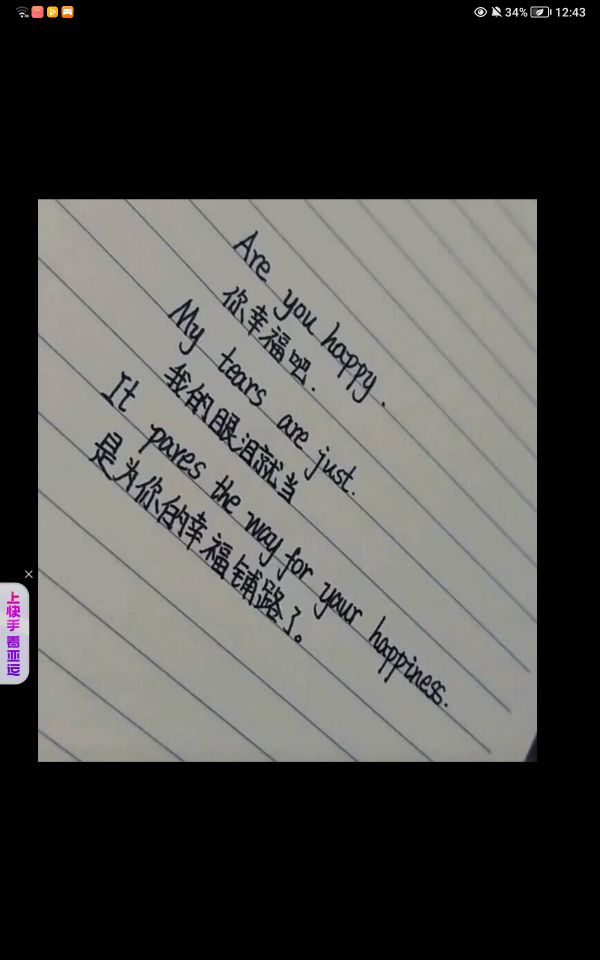 34% 12:43
Are you happy.
你幸福吧.
My tears are just.
我的眼泪就当
It paves the way for your happiness.
是为你的幸福铺路了。
上快手
看亚运